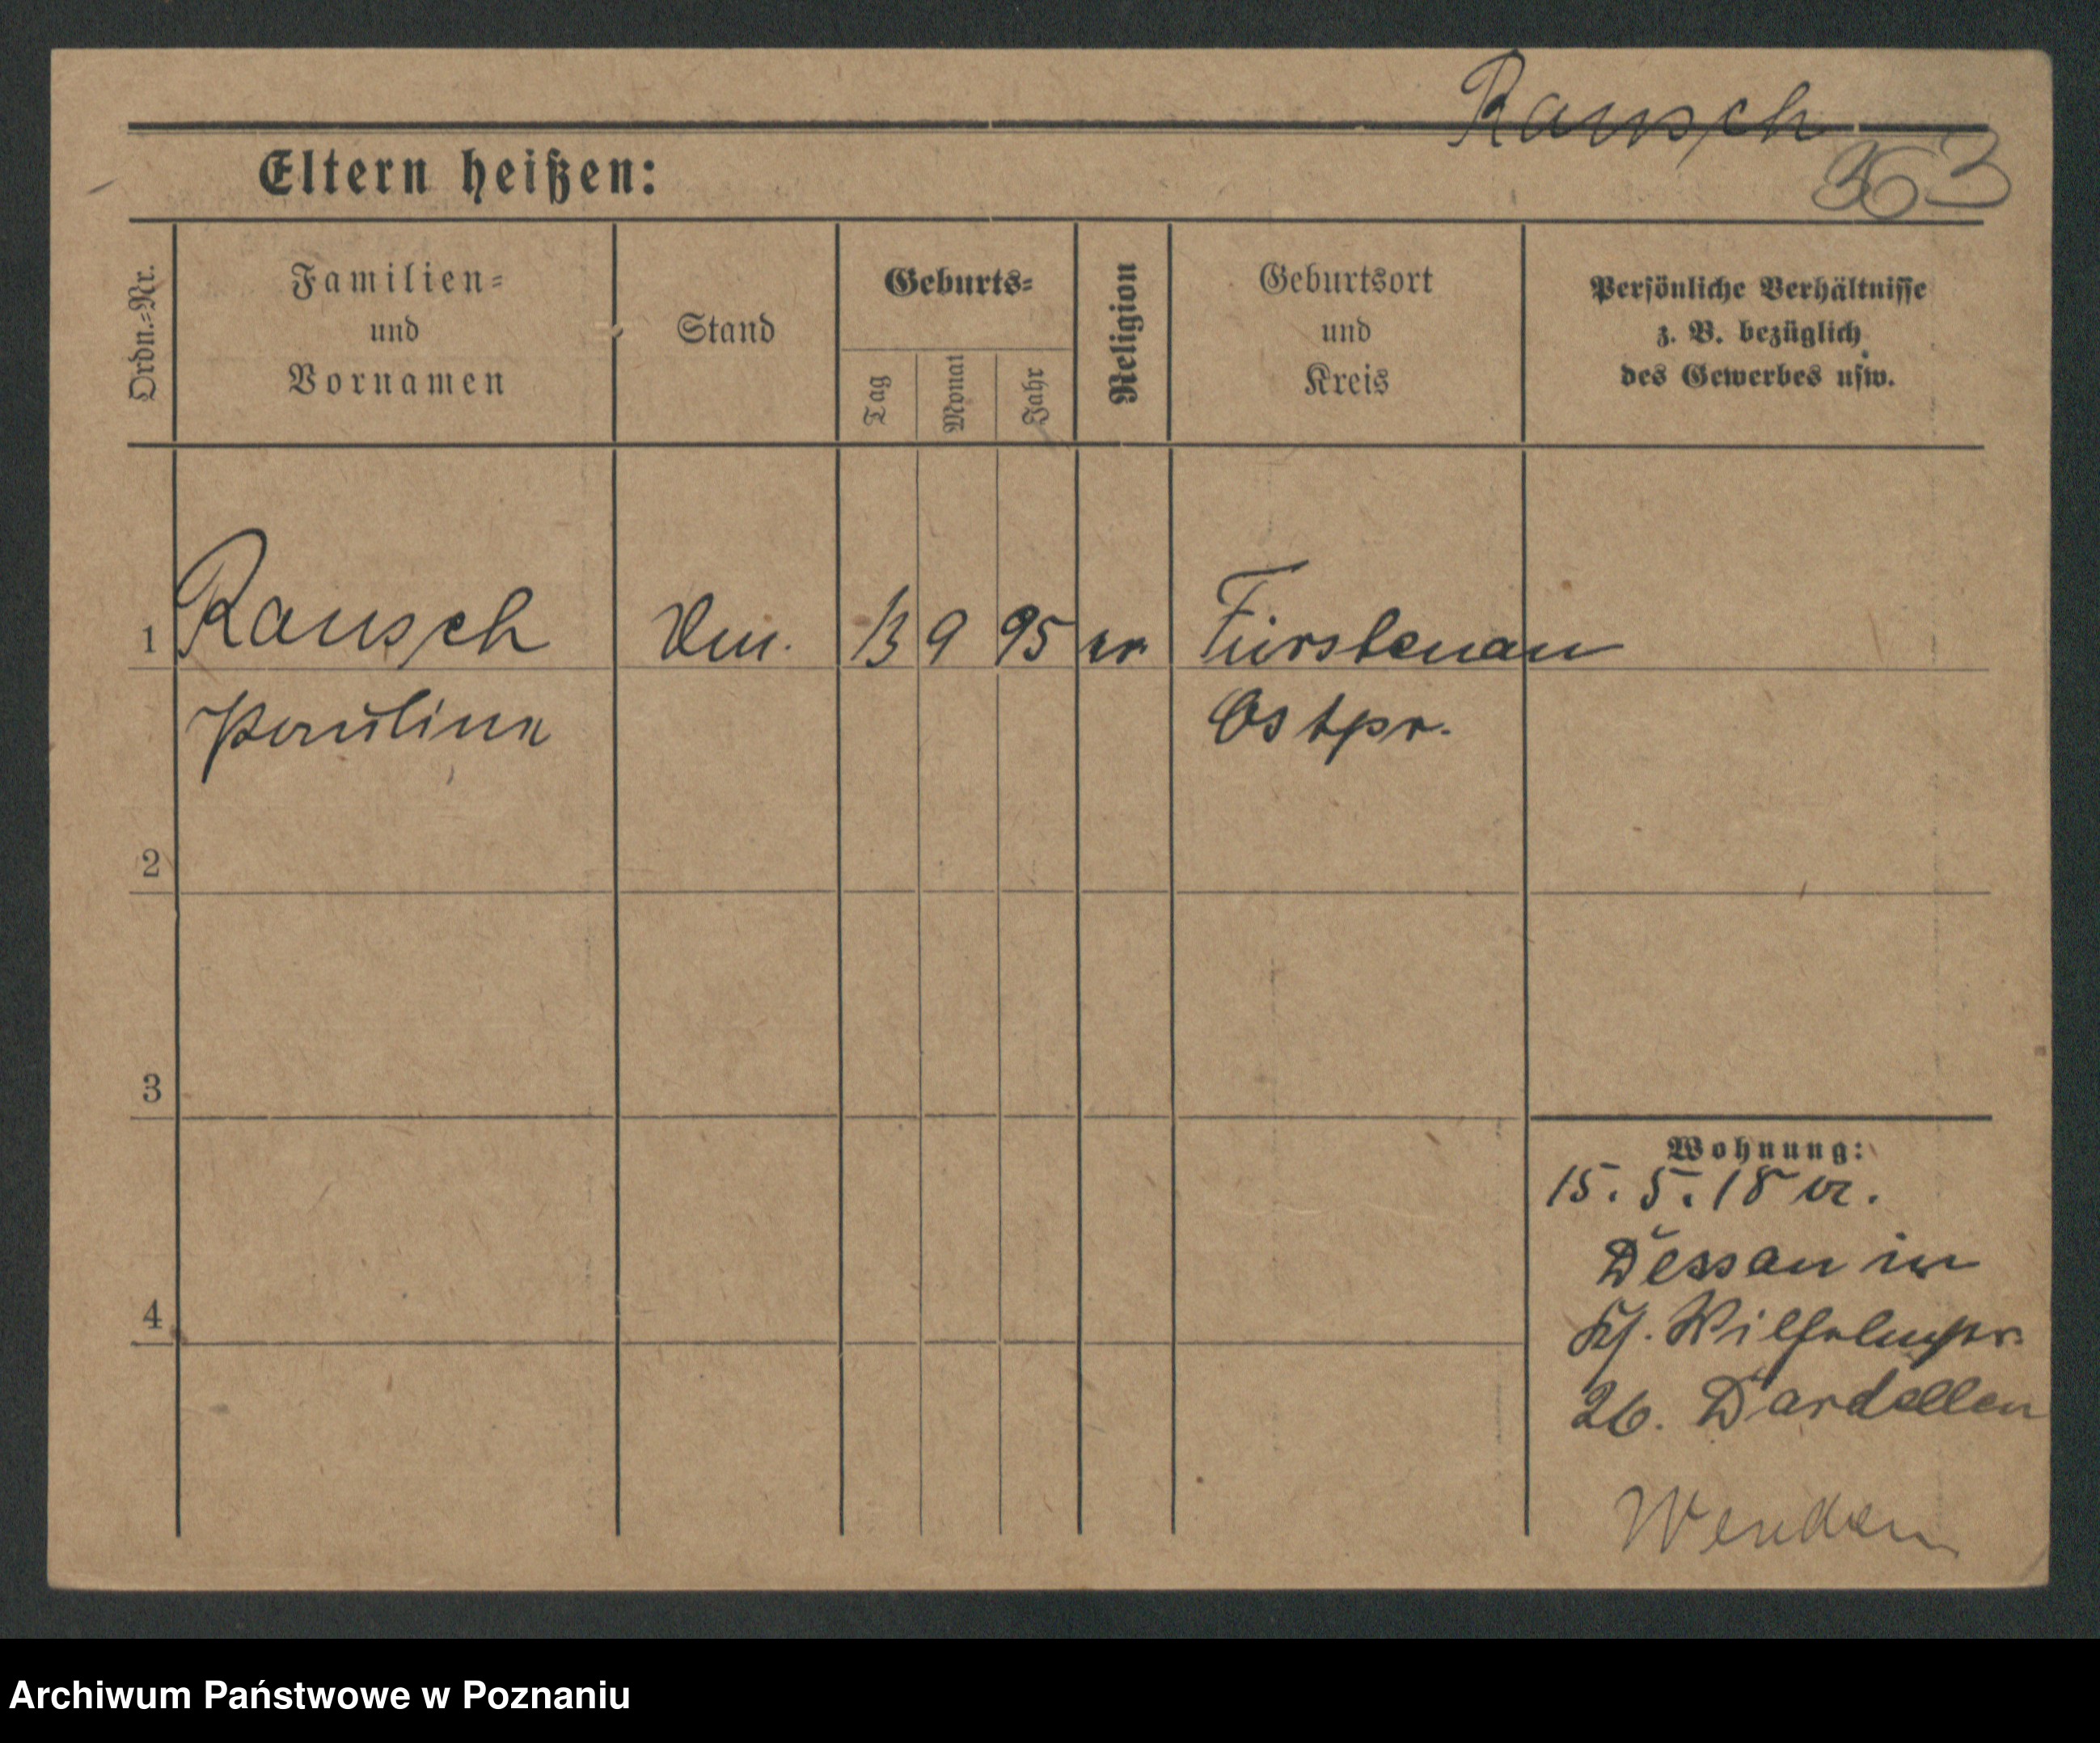 Rausch
363
Eltern heißen:
Ordn.-Nr.
Familien-
und
Vornamen
Stand
Geburts-
Tag
Monat
Jahr
Religion
Geburtsort
und
Kreis
Persönliche Verhältnisse
z. B. bezüglich
des Gewerbes usw.
1
Rausch
13 9 95
Fürstenau
Pauline
Ostpr.
2
3
4
Wohnung:
15. 5. 18 v.
Dessau in
Kg. Wilhelmstr.
26. Dardellen
Wenden
Archiwum Państwowe w Poznaniu